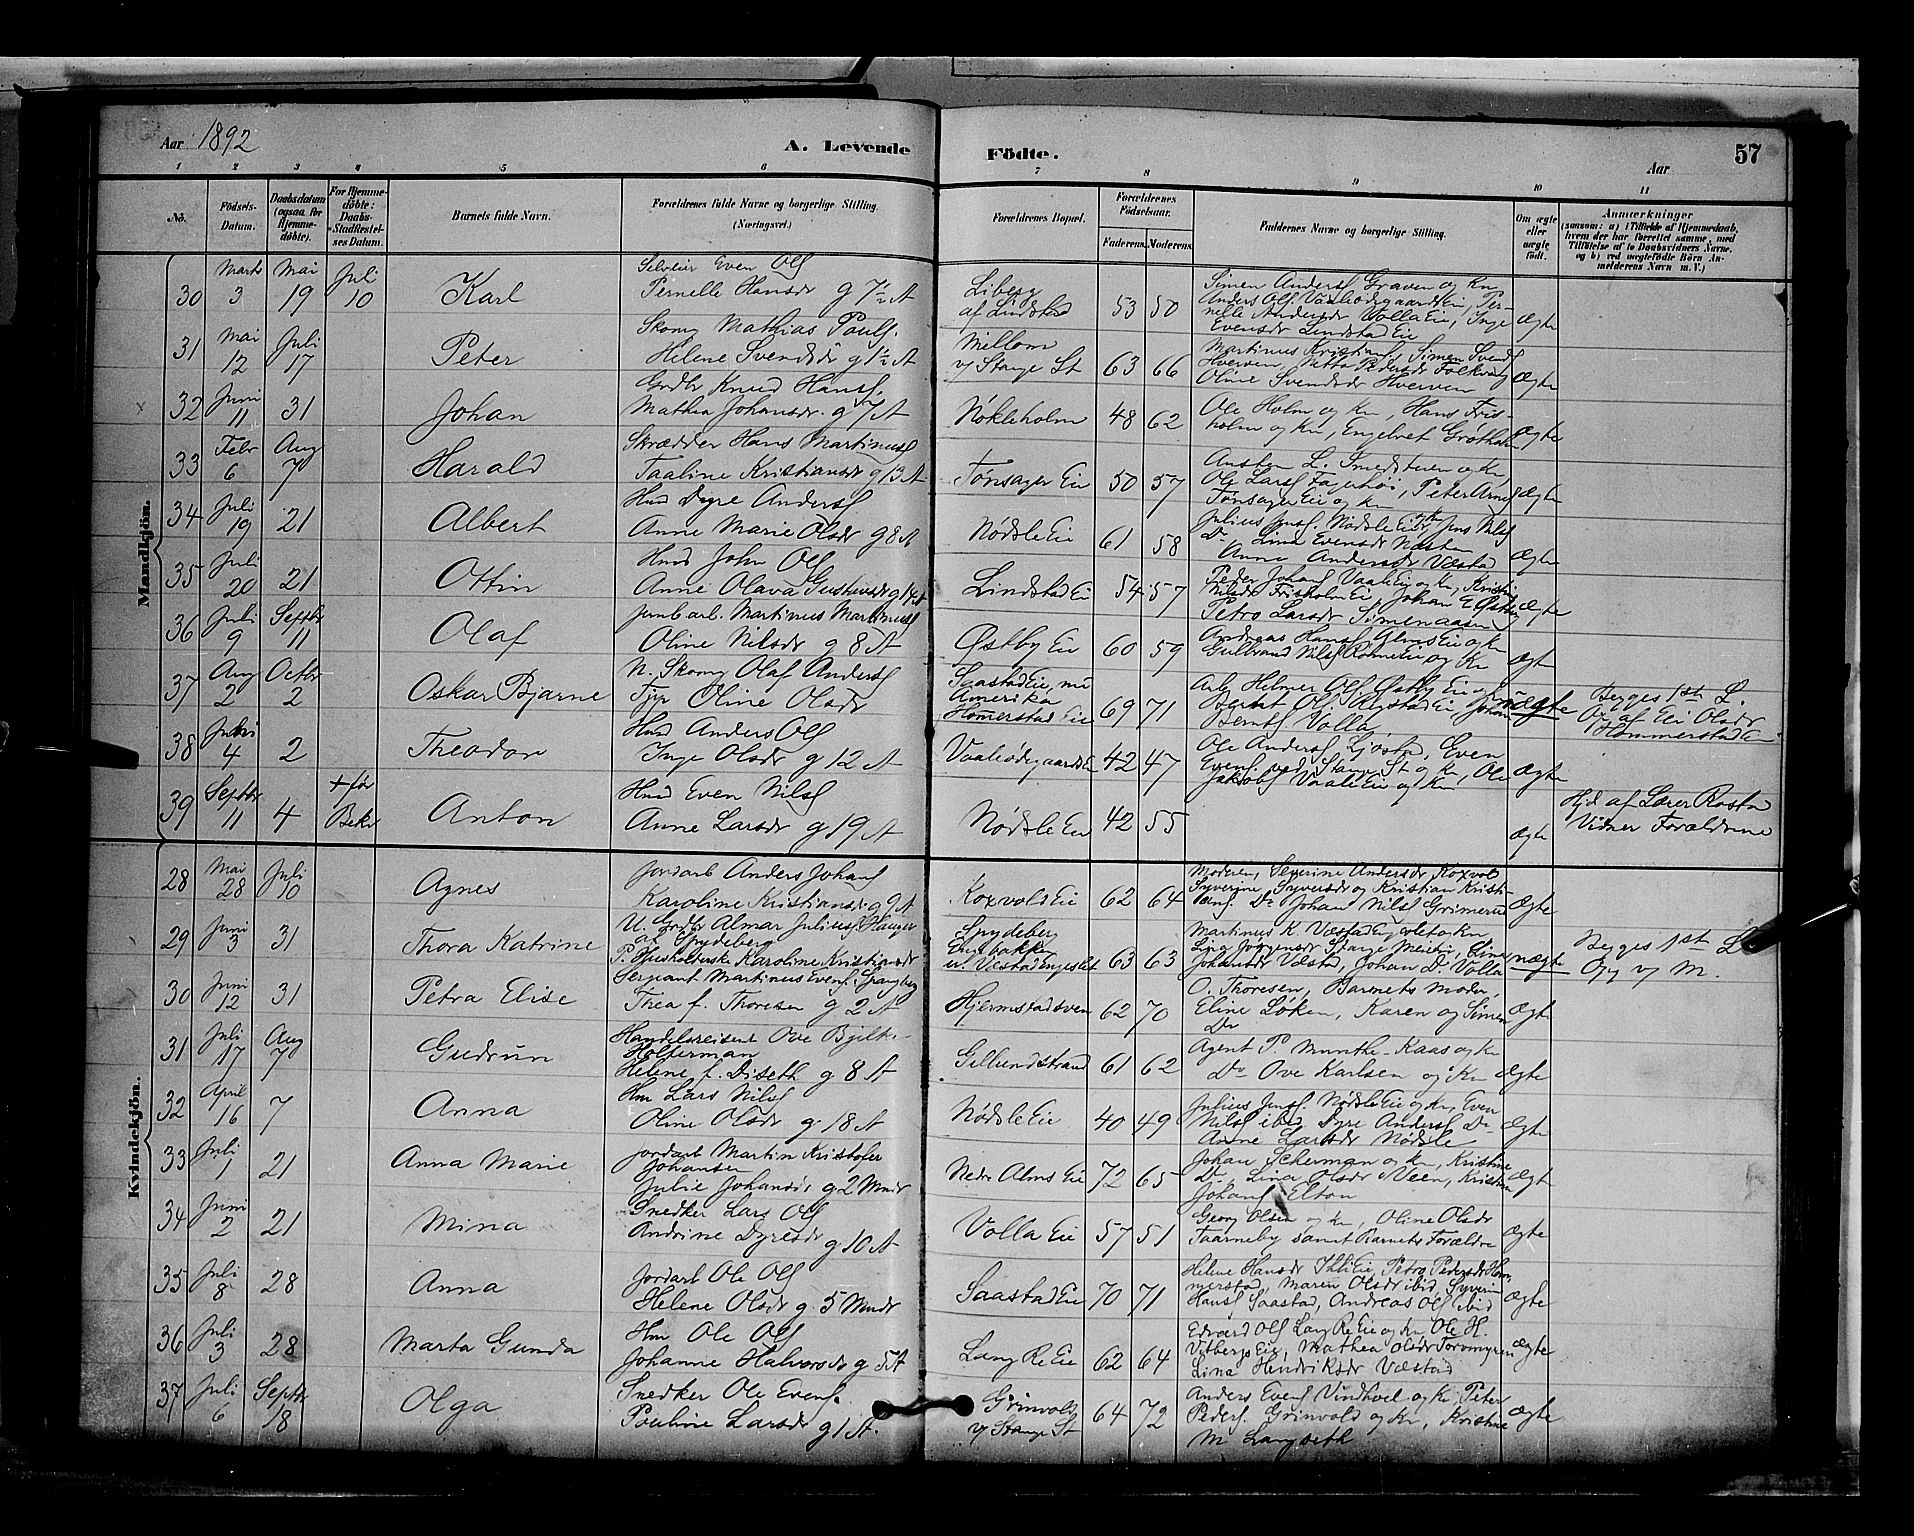 Aar 1892
A. Levende
Födte.
Aar
57
1 2 3 4 5 6 7 8 9 10 11
No.
Födsels-Datum.
Daabsdatum (ogsaa for Hjemme-döbte).
For Hjemme-döbte: Daabs-Stadfæstelses Datum.
Barnets fulde Navn.
Forældrenes fulde Navne og borgerlige Stilling. (Næringsvei.)
Forældrenes Bopæl.
Forældrenes Födselsaar.
Faderens. Moderens.
Faddernes Navne og borgerlige Stilling.
Om ægte eller uægte födt.
Anmærkninger (saasom: a) i Tilfælde af Hjemmedaab, hvem der har forrettet samme, med Tilföielse af to Daabsvidners Navne, og b) ved uægtefödte Börn Anmelderens Navn m. V.)
Mandkjön.
30 Marts 3 Mai 19 Juli 10 Karl
Selveier Even Ols
Pernelle Hansdr g 7½ A
Liberg af Lindstad 53 50
Simen Anders Graven og Kn
Anders Ols Vaaleødegaards Eie, Pernelle Andersdr Volla Eie, Inge
Evensdr Lindstad Eie
Ægte
31 Mai 12 Juli 17 Peter
Skomg Mathias Pouls.
Helene Svendsdr g 1½ A
Mellom v/ Stange St 63 66
Martinus Kristians, Simen Svends
Hverven, Pedersdr Folkvang
Oline Svendsdr Hverven
Ægte
32 Juni 11 31 Johan
Grdbr Knud Hans.
Mathea Johansdr. g 7 A
Nøkleholm 48 62
Ole Holm og Kn, Hans Frisholm og Kn, Engebret Grøtholm
Ægte
33 Febr 6 Aug 7 Harald
Skrædder Hans Martinus
Taaline Kristiansdr g 13 A
Tønsager Eie 50 57
Austen L. Smedstuen og Kn
Ole Lars Fagerhøi, Peter Arnes
Tønsager Eie og Kn
Ægte
34 Juli 19 21 Albert
Hmd Dyre Anders
Anne Marie Olsdr g 8 A
Nødsle Eie 61 58
Julius Jens. Nødsle Eie, Jens Nils
Do, Lina Evensdr Næsten
Anne Andersdr Væstad
Ægte
35 Juli 20 21 Ottin
Hmd John Ols
Anne Olava Gustavsdr g 14 A
Lindstad Eie 54 57
Peder Johans Vaale Eie og Kn, Kristin
Nilsdr Frisholm Eie, Johan E Østby
Petra Larsdr Simenaasen
Ægte
36 Juli 9 Septbr 11 Olaf
Jernbarb. Martinus Martinus
Oline Nilsdr g 8 A
Østby Eie 60 59
Andreas Hans Alms Eie og Kn
Gulbrand Nils Rømme Eie og Kn
Ægt
37 Aug 2 Octbr 2 Oskar Bjarne
U. Skomg Olaf Anders
Tjp Oline Olsdr
Saastad Eie, nu Amerika
Hommerstad Eie 69 71
Arb Helmer Ols Østby Eie og
Bernt Ols Rystad Eie, Johan
Bernts Volla
uægte
Begges 1ste L.
Og af Eli Olsdr
Hommerstad Eie
38 Juli 4 2 Theodor
Hmd Anders Ols
Inge Olsdr g 12 A
Vaaleødegaards Eie 42 47
Ole Anders Ljøstad, Even
Evens. ved Stange St og Kn, Ole
Jakobs Vaale Eie og Kn
Ægte
39 Septbr 11 4 + før Bekr Anton
Hmd Even Nils
Anne Larsdr g 19 A
Nødsle Eie 42 55
ægte
Hjd af Lærer Rostad
Vidner Forældrene
Kvindekjön.
28 Mai 28 Juli 10 Agnes
Jordarb Anders Johans
Karoline Kristiansdr g 9 A
Koxvold Eie 62 64
Moderen, Severine Andersdr Koxvold
Syverine Syversdr og Kristian Kristians. Do Johan Nils Grimerud
Ægte
29 Juni 3 31 Thora Katrine
U. Grdbr Almar Julius. Hauger
af Spydeberg
P. Husholderske Karoline Kristiansdr
Spydeberg
Engebakken
u. Væstad Engeslet 63 63
Martinus K. Væstad og Kn
Lina Jørgensdr Stange Meieri, Eline
Johansdr Væstad, Johan Do Volla
uægte
Begges 1st L
Opg v/ M.
30 Juni 12 31 Petra Elise
Sergeant Martinus Evens. Spangberg
Thea f. Thoresen g 2 A
Hjermstadsveen 62 70
O. Thoresen, Barnets Moder,
Eline Løken, Karen og Simen
Do
Ægte
31 Juli 17 Aug 7 Gudrun
Handelsreisende Ove Bjelke
Holterman
Helene f. Diseth g 8 A
Gillundstrand 61 62
Agent P. Munthe-Kaas og Kn
Do Ove Karlsen og Kn
Ægte
32 April 16 7 Anna
Hm Lars Nils
Oline Olsdr g. 18 A
Nødsle Eie 40 49
Julius Jens. Nødsle Eie og Kn, Even
Nils ibid, Dyre Anders Do
Anne Larsdr Nødsle
Ægte
33 Juli 1 21 Anna Marie
Jordarb Martin Kristofer
Johansen
Julie Johansdr g 2 Mndr
Nedre Alms Eie 72 65
Johan Scherman og Kn, Kristine
Do, Lina Olsdr Veen, Kristian
Johans Elton
Ægt
34 Juni 2 21 Mina
Snedker Lars Ols
Andrine Dyresdr g 10 A
Volla Eie 57 51
Georg Olsen og Kn, Oline Olsdr
Taarneby samt Barnets Forældre
Ægte
35 Juli 8 28 Anna
Jordarb Ole Ols
Helene Olsdr g. 5 Mndr
Saastad Eie 70 71
Helene Hansdr Ihle Eie, Petra Pedersdr Hommerstad, Maren Olsdr ibid, Syverin
Hans Saastad, Andreas Ols ibid
Ægte
36 Juli 3 28 Marta Gunda
Hm Ole Ols
Johanne Halvorsdr g 5 A
Lang Re Eie 62 64
Edvard Ols Lang Re Eie og Kn Ole H.
Vitberg Eie, Mathea Olsdr Toromyren
Lina Hendriksdr Væstad
Ægte
37 Juli 6 Septbr 18 Olga
Snedker Ole Evens.
Pauline Larsdr g 1 A.
Grinvold v/ Stange St 64 72
Anders Evens Vindhvel og Kn Peter
Peders. Grinvold og Kn, Kristine
M Langseth
Ægte